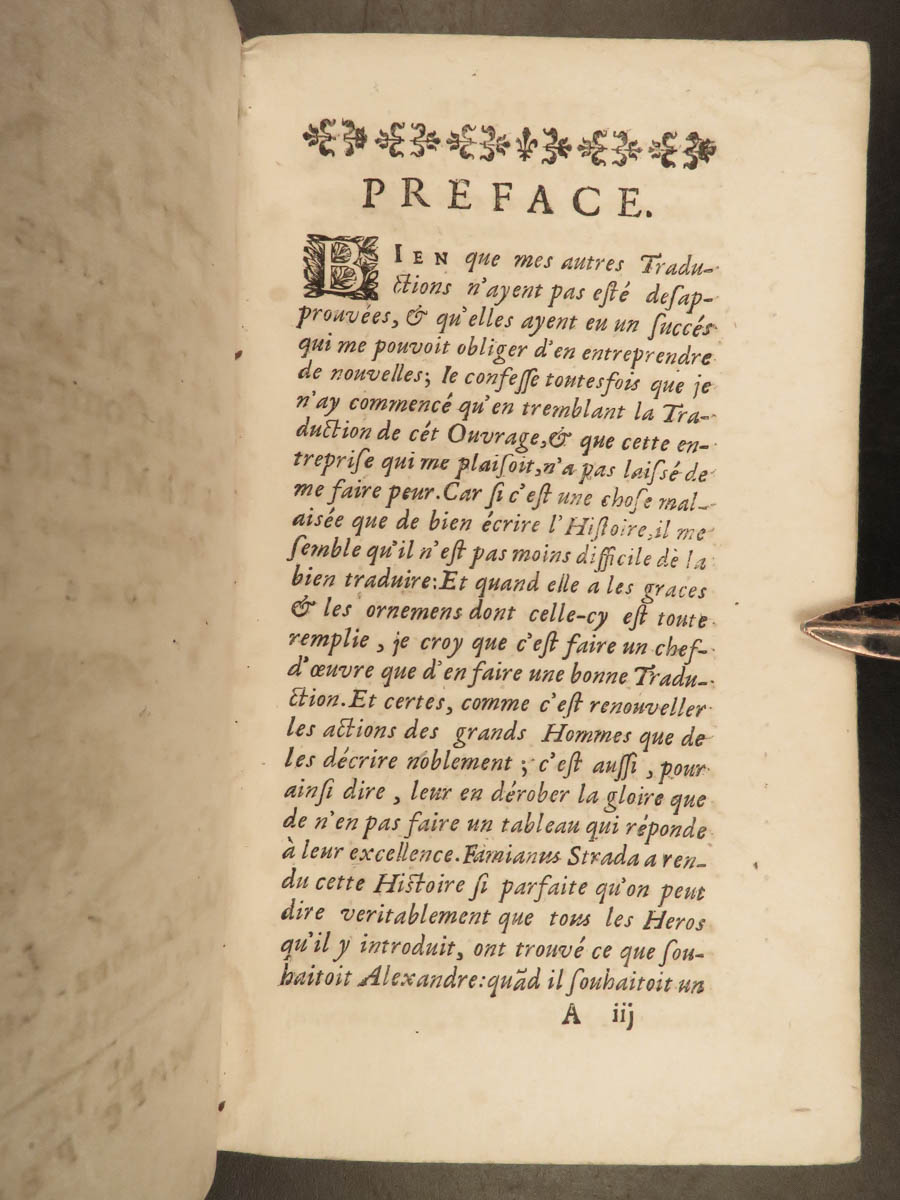 PREFACE.
BIEN que mes autres Tradu-
ctions n'ayent pas eſté deſap-
prouvées, & qu'elles ayent eu un ſuccés
qui me pouvoit obliger d'en entreprendre
de nouvelles; Ie confeſſe toutesfois que je
n'ay commencé qu'en tremblant la Tra-
duction de cét Ouvrage, & que cette en-
trepriſe qui me plaiſoit, n'a pas laiſſé de
me faire peur. Car ſi c'eſt une choſe mal-
aisée que de bien écrire l'Hiſtoire, il me
ſemble qu'il n'eſt pas moins difficile de la
bien traduire: Et quand elle a les graces
& les ornemens dont celle-cy eſt toute
remplie, je croy que c'eſt faire un chef-
d'œuvre que d'en faire une bonne Tradu-
ction. Et certes, comme c'eſt renouveller
les actions des grands Hommes que de
les décrire noblement; c'eſt auſſi, pour
ainſi dire, leur en dérober la gloire que
de n'en pas faire un tableau qui réponde
à leur excellence. Famianus Strada a ren-
du cette Hiſtoire ſi parfaite qu'on peut
dire veritablement que tous les Heros
qu'il y introduit, ont trouvé ce que ſou-
haitoit Alexandre: quãd il ſouhaitoit un
A iij